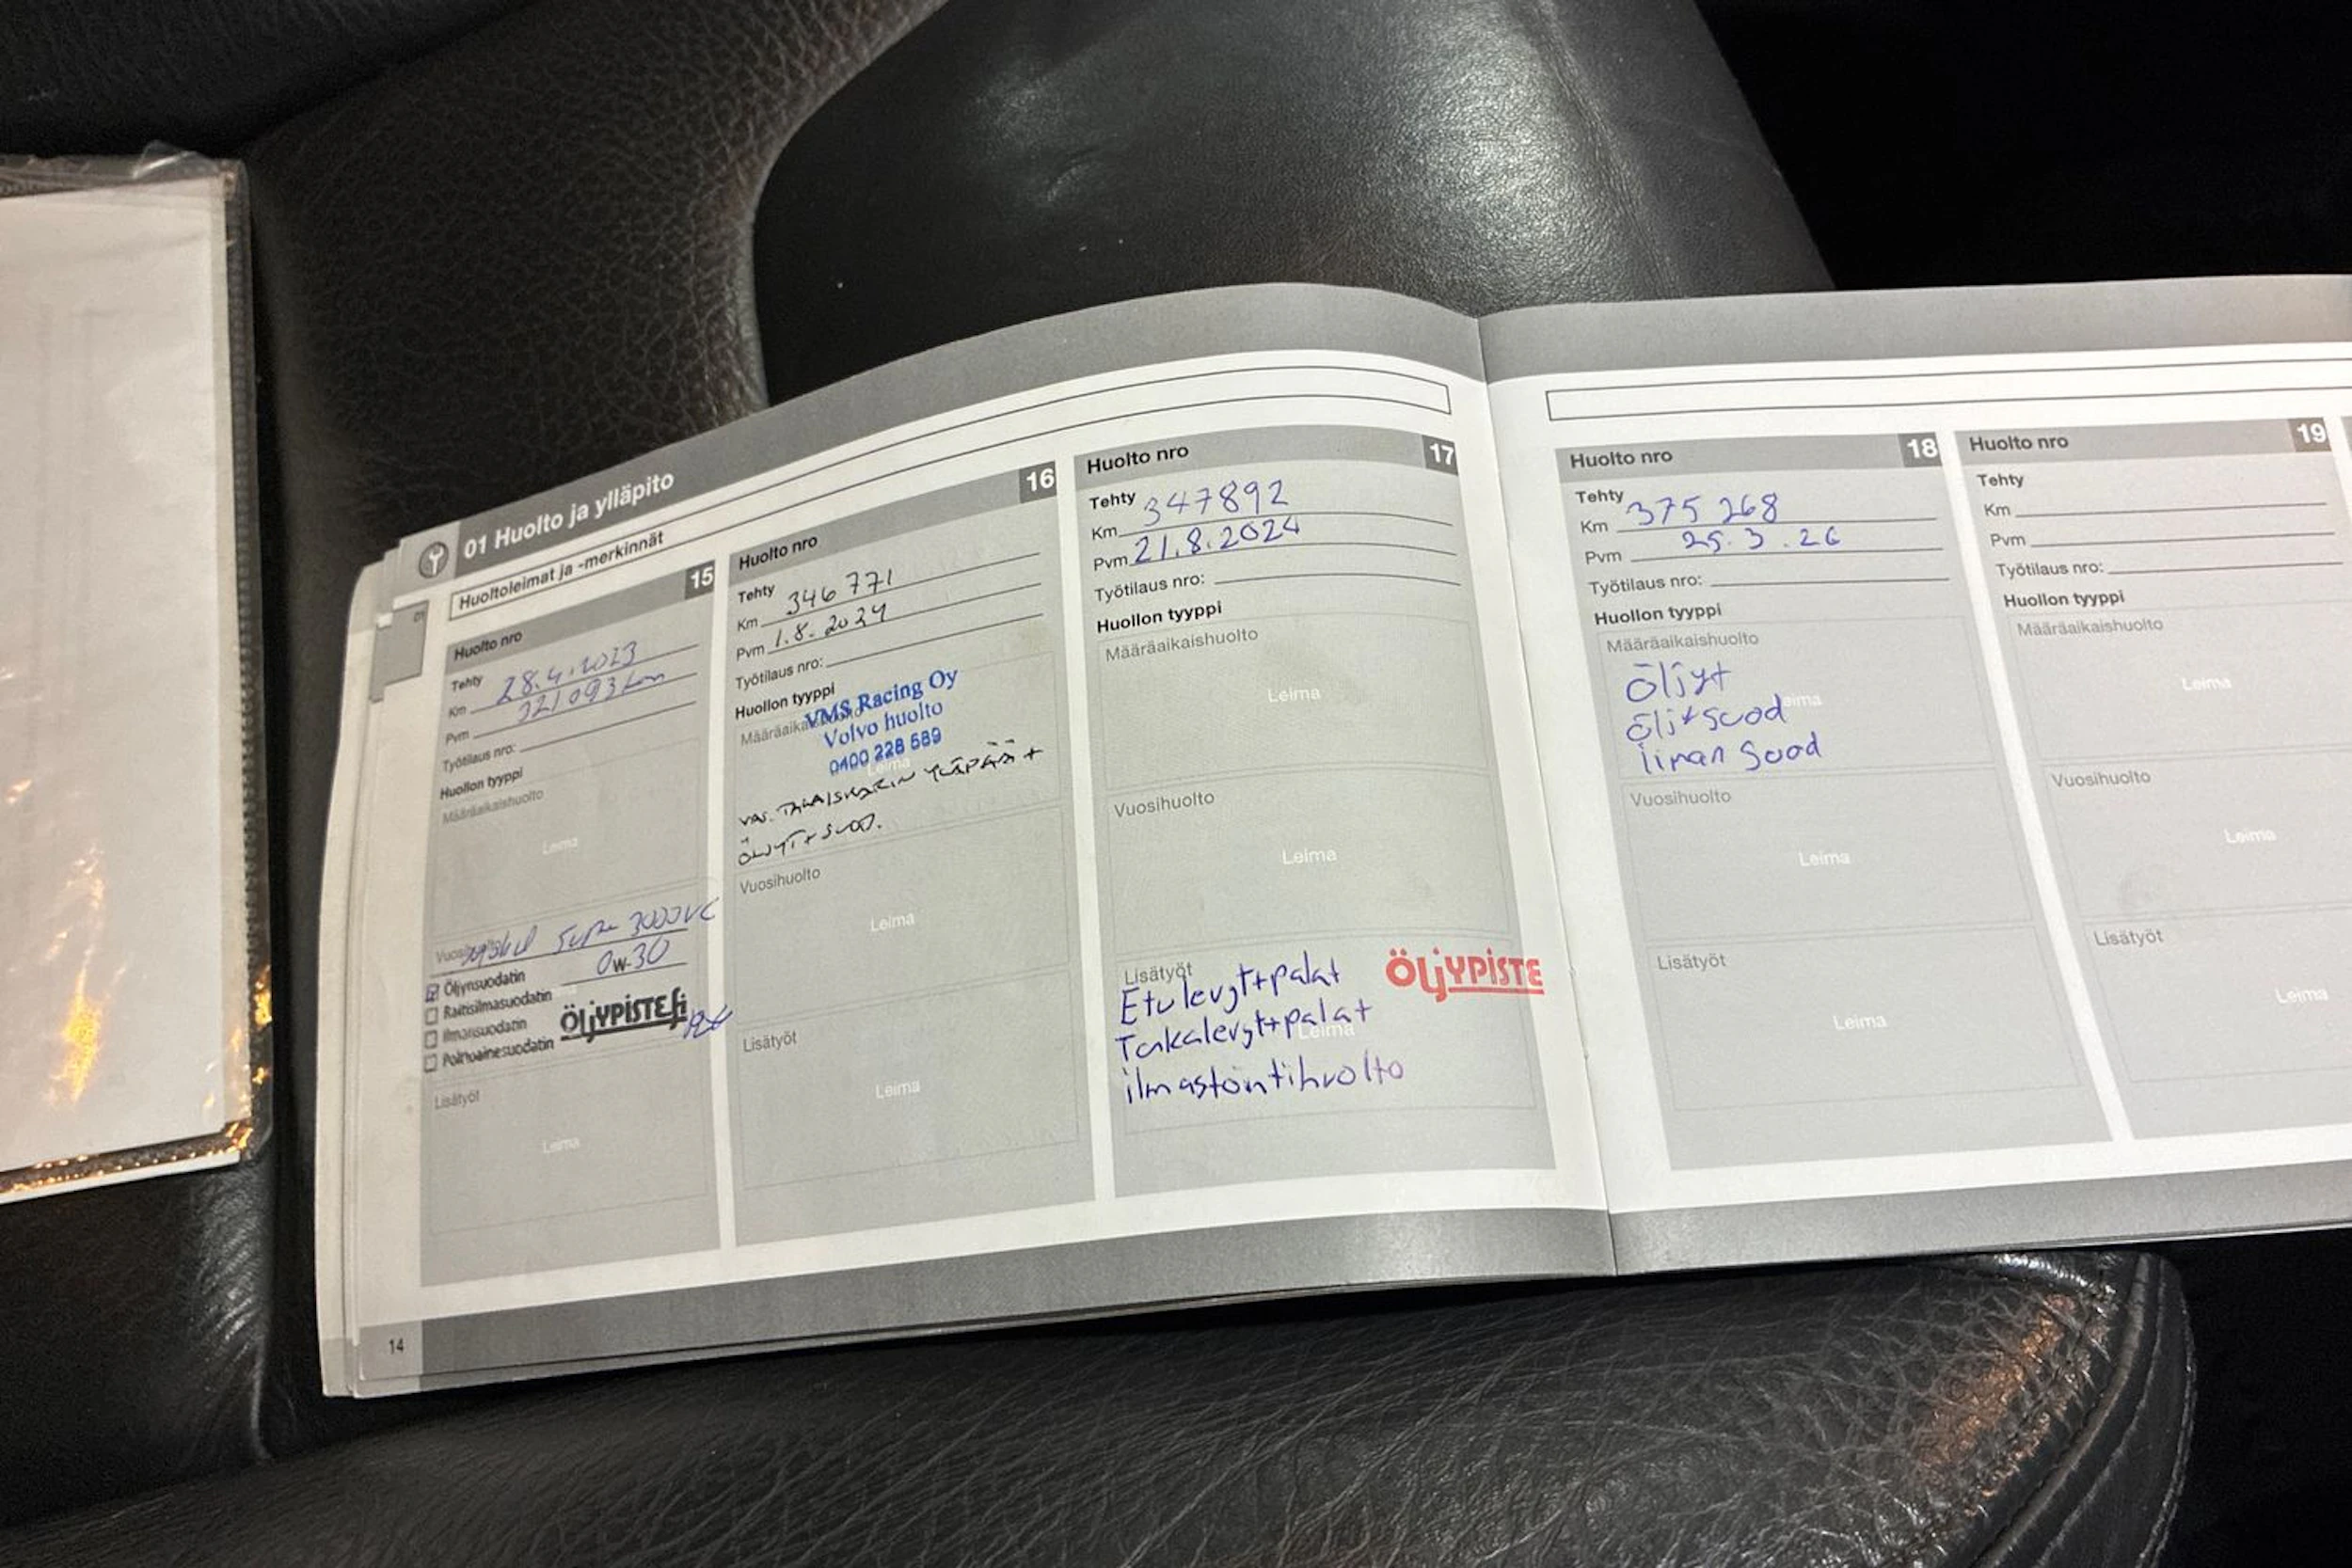 01 Huolto ja ylläpito
Huoltoleimat ja -merkinnät
01
Huolto nro 15
Tehty 28.4.2023
Km 321 093 km
Pvm
Työtilaus nro:
Huollon tyyppi
Määräaikaishuolto
Leima
0W-30
Öljynsuodatin
Raitisilmasuodatin
Ilmansuodatin
Polttoainesuodatin
ÖljYPiSTE.fi
Lisätyöt
Leima
Huolto nro 16
Tehty
Km 346 771
Pvm 1.8.2024
Työtilaus nro:
Huollon tyyppi
VMS Racing Oy
Volvo huolto
0400 228 589
Leima
VAS. TAKAISKARIN YLÄPÄÄ +
ÖLJYT + SUOD.
Vuosihuolto
Leima
Lisätyöt
Leima
Huolto nro 17
Tehty 347892
Km
Pvm 21.8.2024
Työtilaus nro:
Huollon tyyppi
Määräaikaishuolto
Leima
Vuosihuolto
Leima
Lisätyöt
ÖljYPiSTE
Etulevyt+palat
Takalevyt+palat
Leima
ilmastointihuolto
Huolto nro 18
Tehty
Km 375 268
Pvm 25.3.26
Työtilaus nro:
Huollon tyyppi
Määräaikaishuolto
Öljyt
suod
suod
Vuosihuolto
Leima
Lisätyöt
Leima
Huolto nro 19
Tehty
Km
Pvm
Työtilaus nro:
Huollon tyyppi
Määräaikaishuolto
Leima
Vuosihuolto
Leima
Lisätyöt
Leima
14